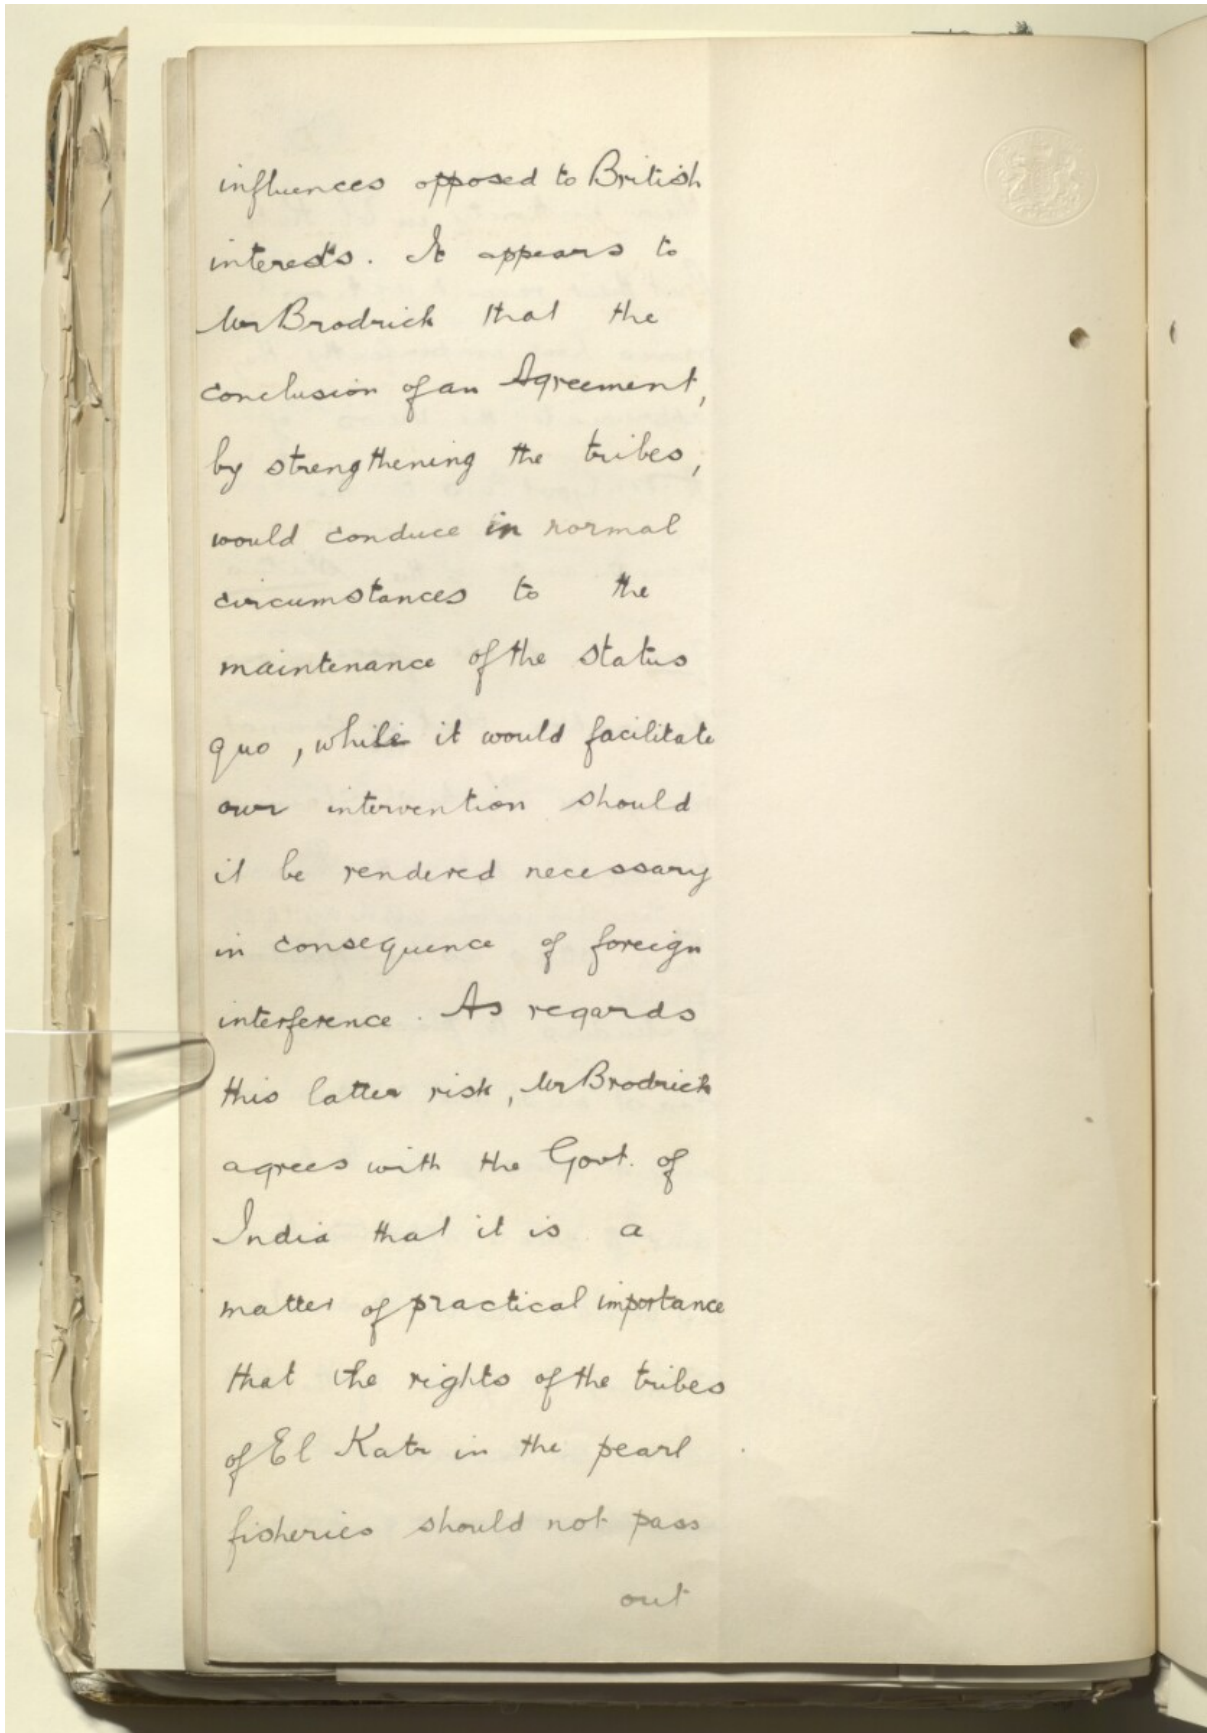 influences opposed to British
interests. It appears to
Mr Brodrick that the
conclusion of an Agreement,
by strengthening the tribes,
would conduce in normal
circumstances to the
maintenance of the status
quo, while it would facilitate
our intervention should
it be rendered necessary
in consequence of foreign
interference. As regards
this latter risk, Mr Brodrick
agrees with the Govt. of
India that it is a
matter of practical importance
that the rights of the tribes
of El Katr in the pearl
fisheries should not pass
out